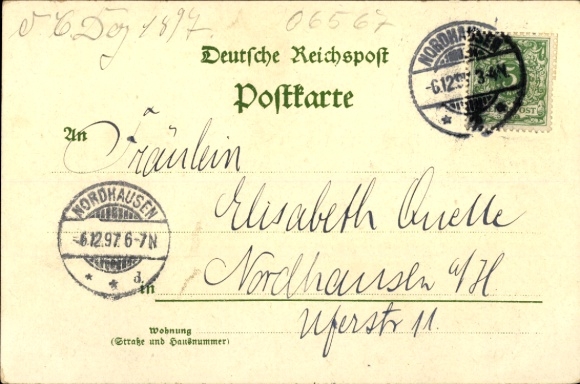 1897.
06567
Deutsche Reichspost
Postkarte
NORDHAUSEN
-6.12.97. 3-4N
5
POST
An
Fräulein
Elisabeth Quelle
NORDHAUSEN
-6.12.97. 6-7N
d.
in Nordhausen a/H.
Uferstr 11.
Wohnung
(Straße und Hausnummer)